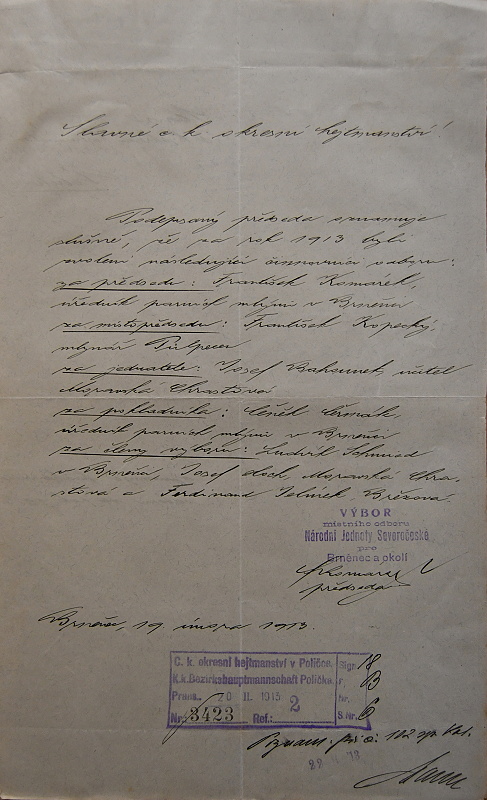 Slavné c. k. okresní hejtmanství!
Podepsaný předseda oznamuje
slušně, že za rok 1913 byli
zvoleni následující činovníci odboru:
za předsedu: František Komárek,
úředník parních mlýnů v Brněnci
za místopředsedu: František Kopecký,
mlynář
za jednatele: Josef učitel
Moravská Chrastová
za pokladníka: Čeněk Čermák,
úředník parních mlýnů v Brněnci
za členy výboru: Ludvík Schmied
v Brněnci, Josef Moravská Chra-
stová a Ferdinand Jelínek, Březová
VÝBOR
místního odboru
Národní Jednoty Severočeské
pro
Brněnec a okolí
Komárek
předseda
Brněnec, 19. února 1913.
C. k. okresní hejtmanství v Poličce.
K.k. Bezirkshauptmannschaft Polička.
Praes. 20 II. 1913
Nr. 3423 Ref.: 2
Sign. 18
B
Nr.
S. Nr. 6